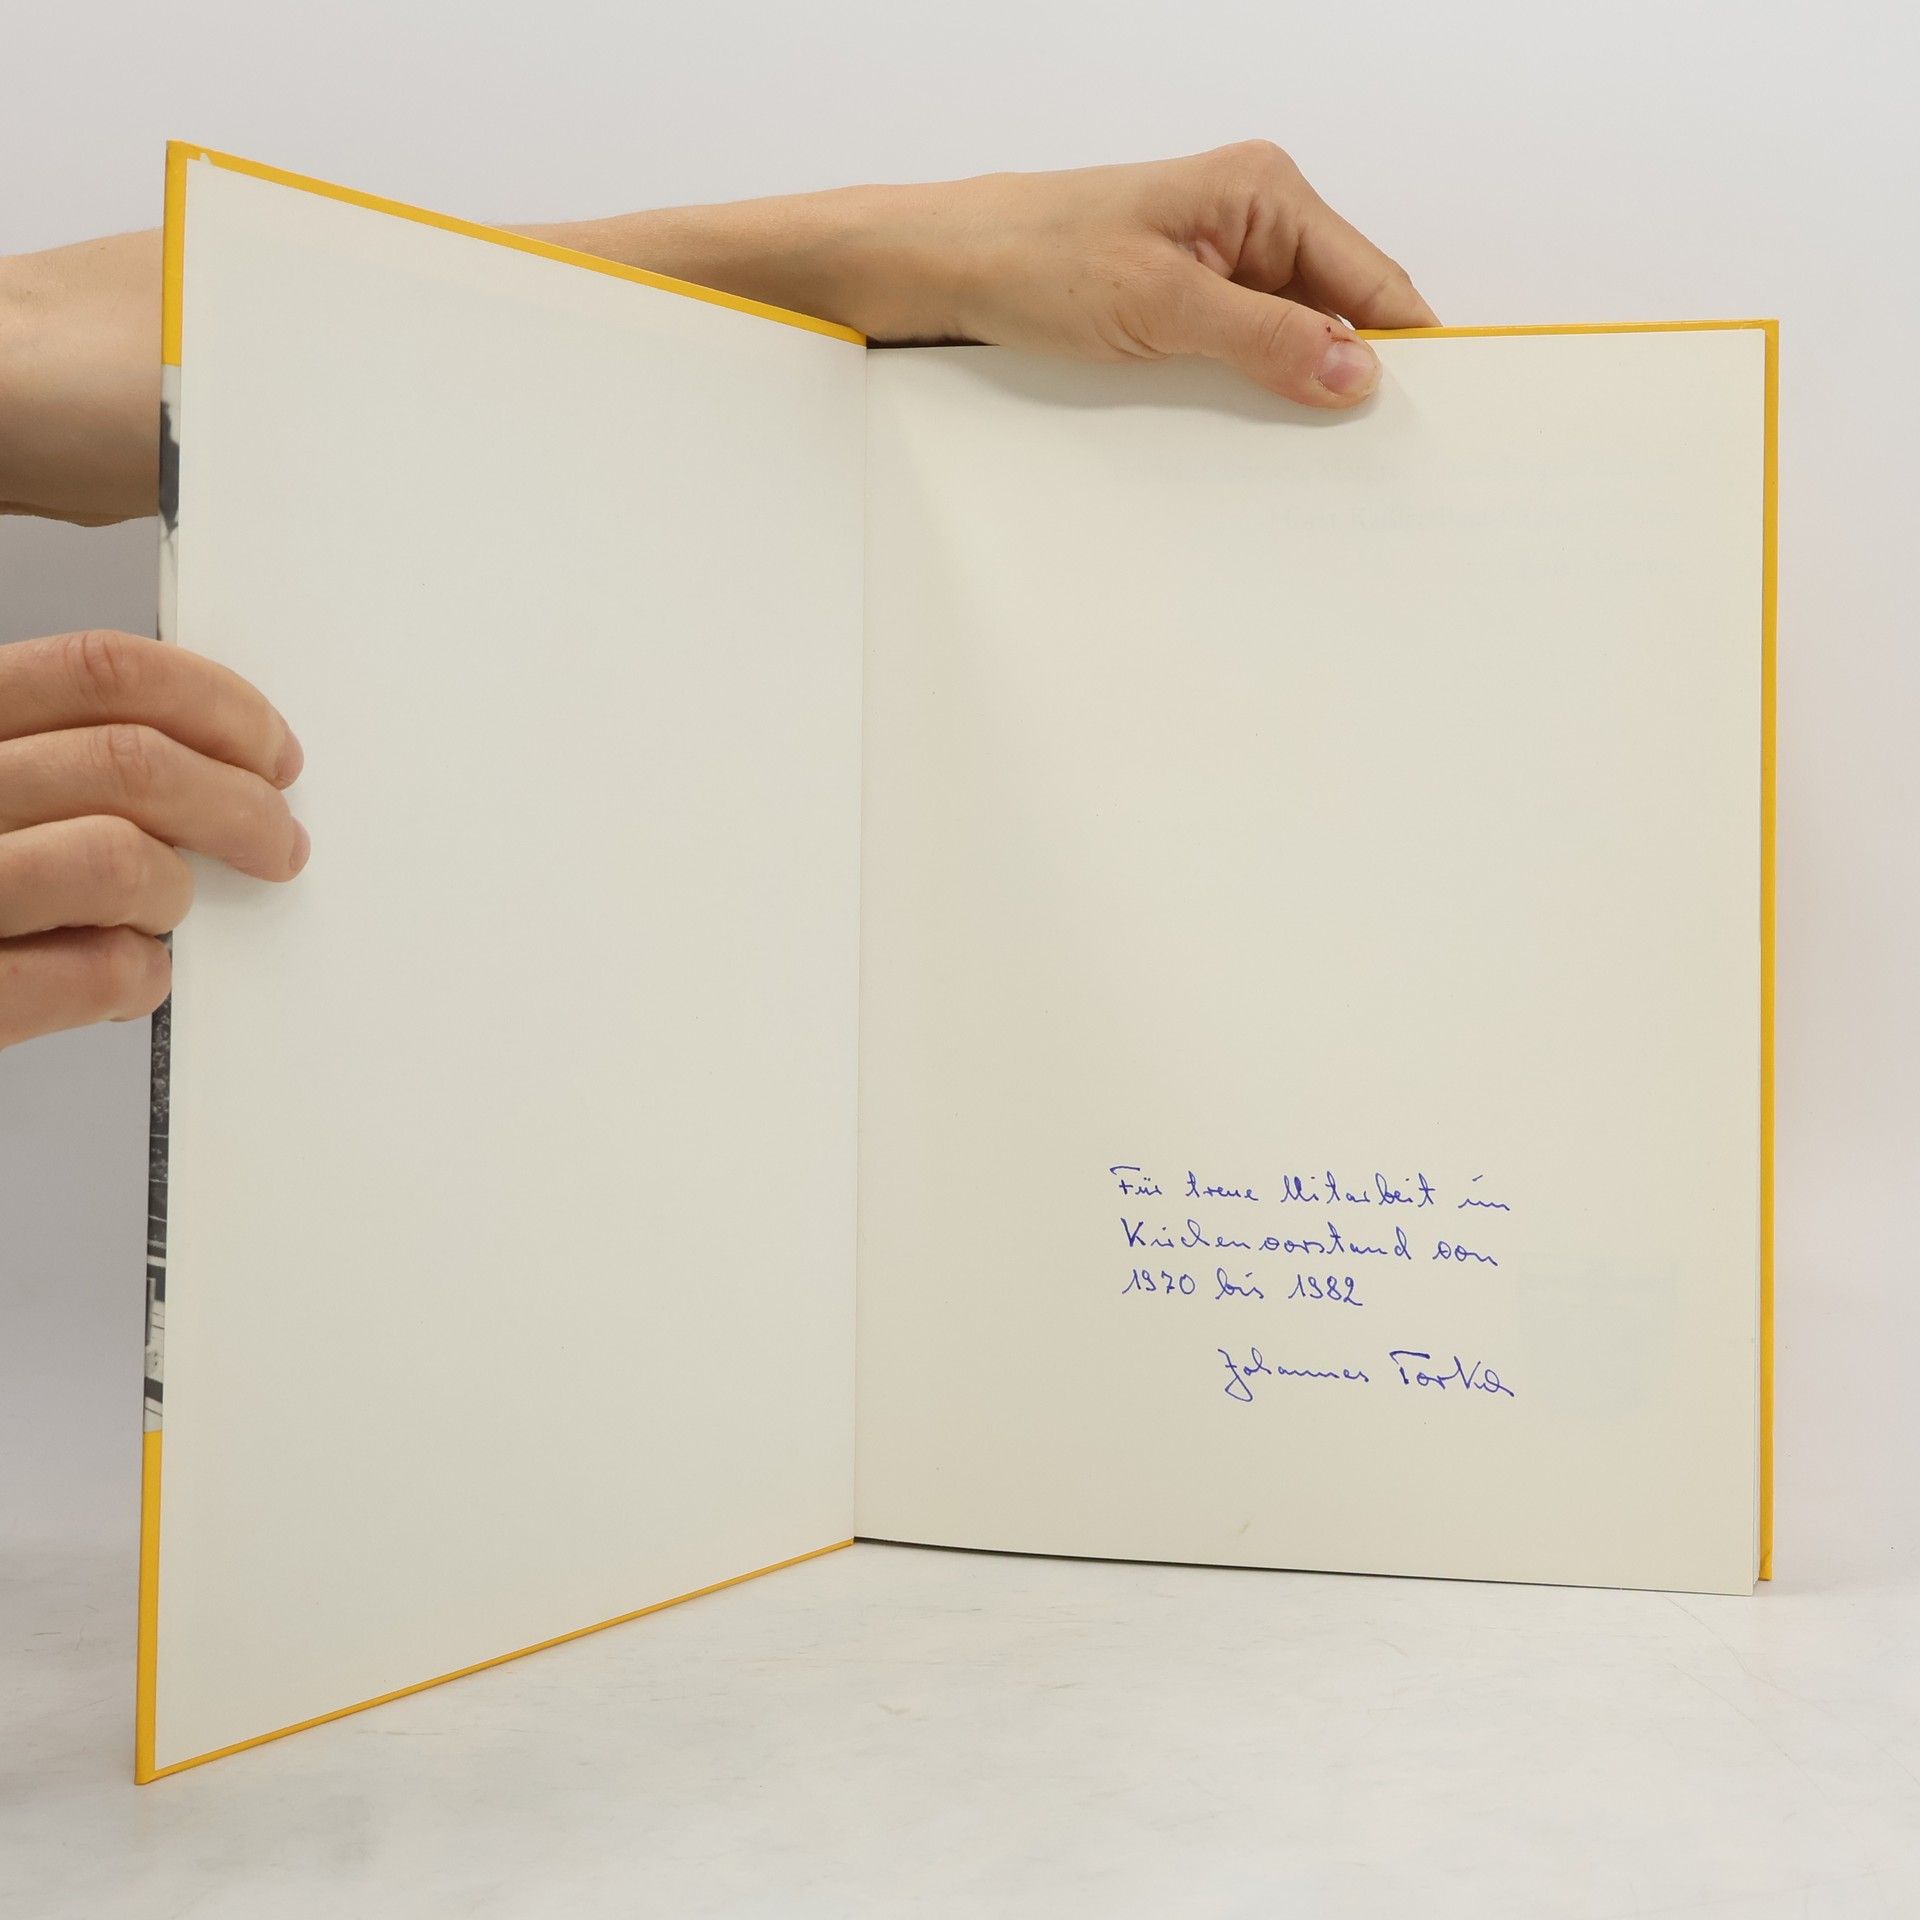 Für treue Mitarbeit im
Kirchenvorstand von
1970 bis 1982
Johannes